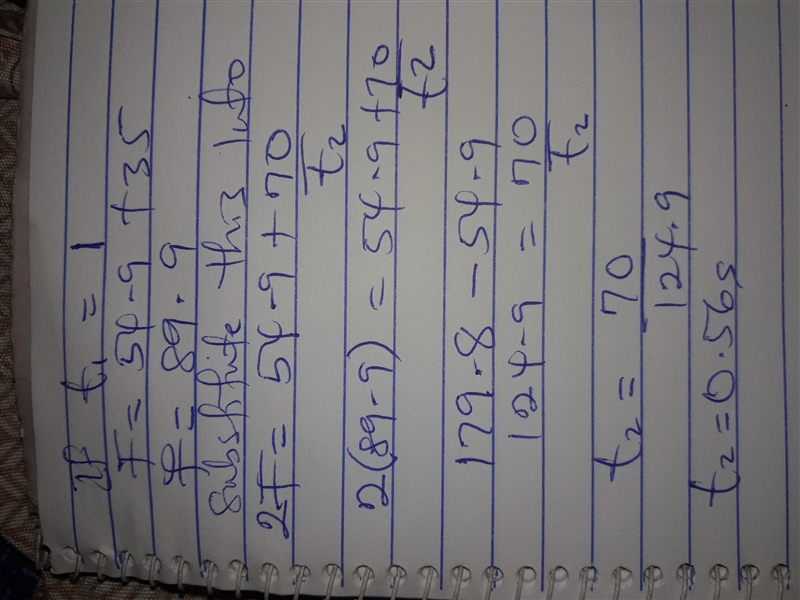 If t₁ = 1
F = 54.9 + 35
F = 89.9
Substitute this into
2F = 54.9 + 70/t₂
2(89.9) = 54.9 + 70/t₂
179.8 - 54.9
124.9 = 70/t₂
t₂ = 70/124.9
t₂ = 0.56s